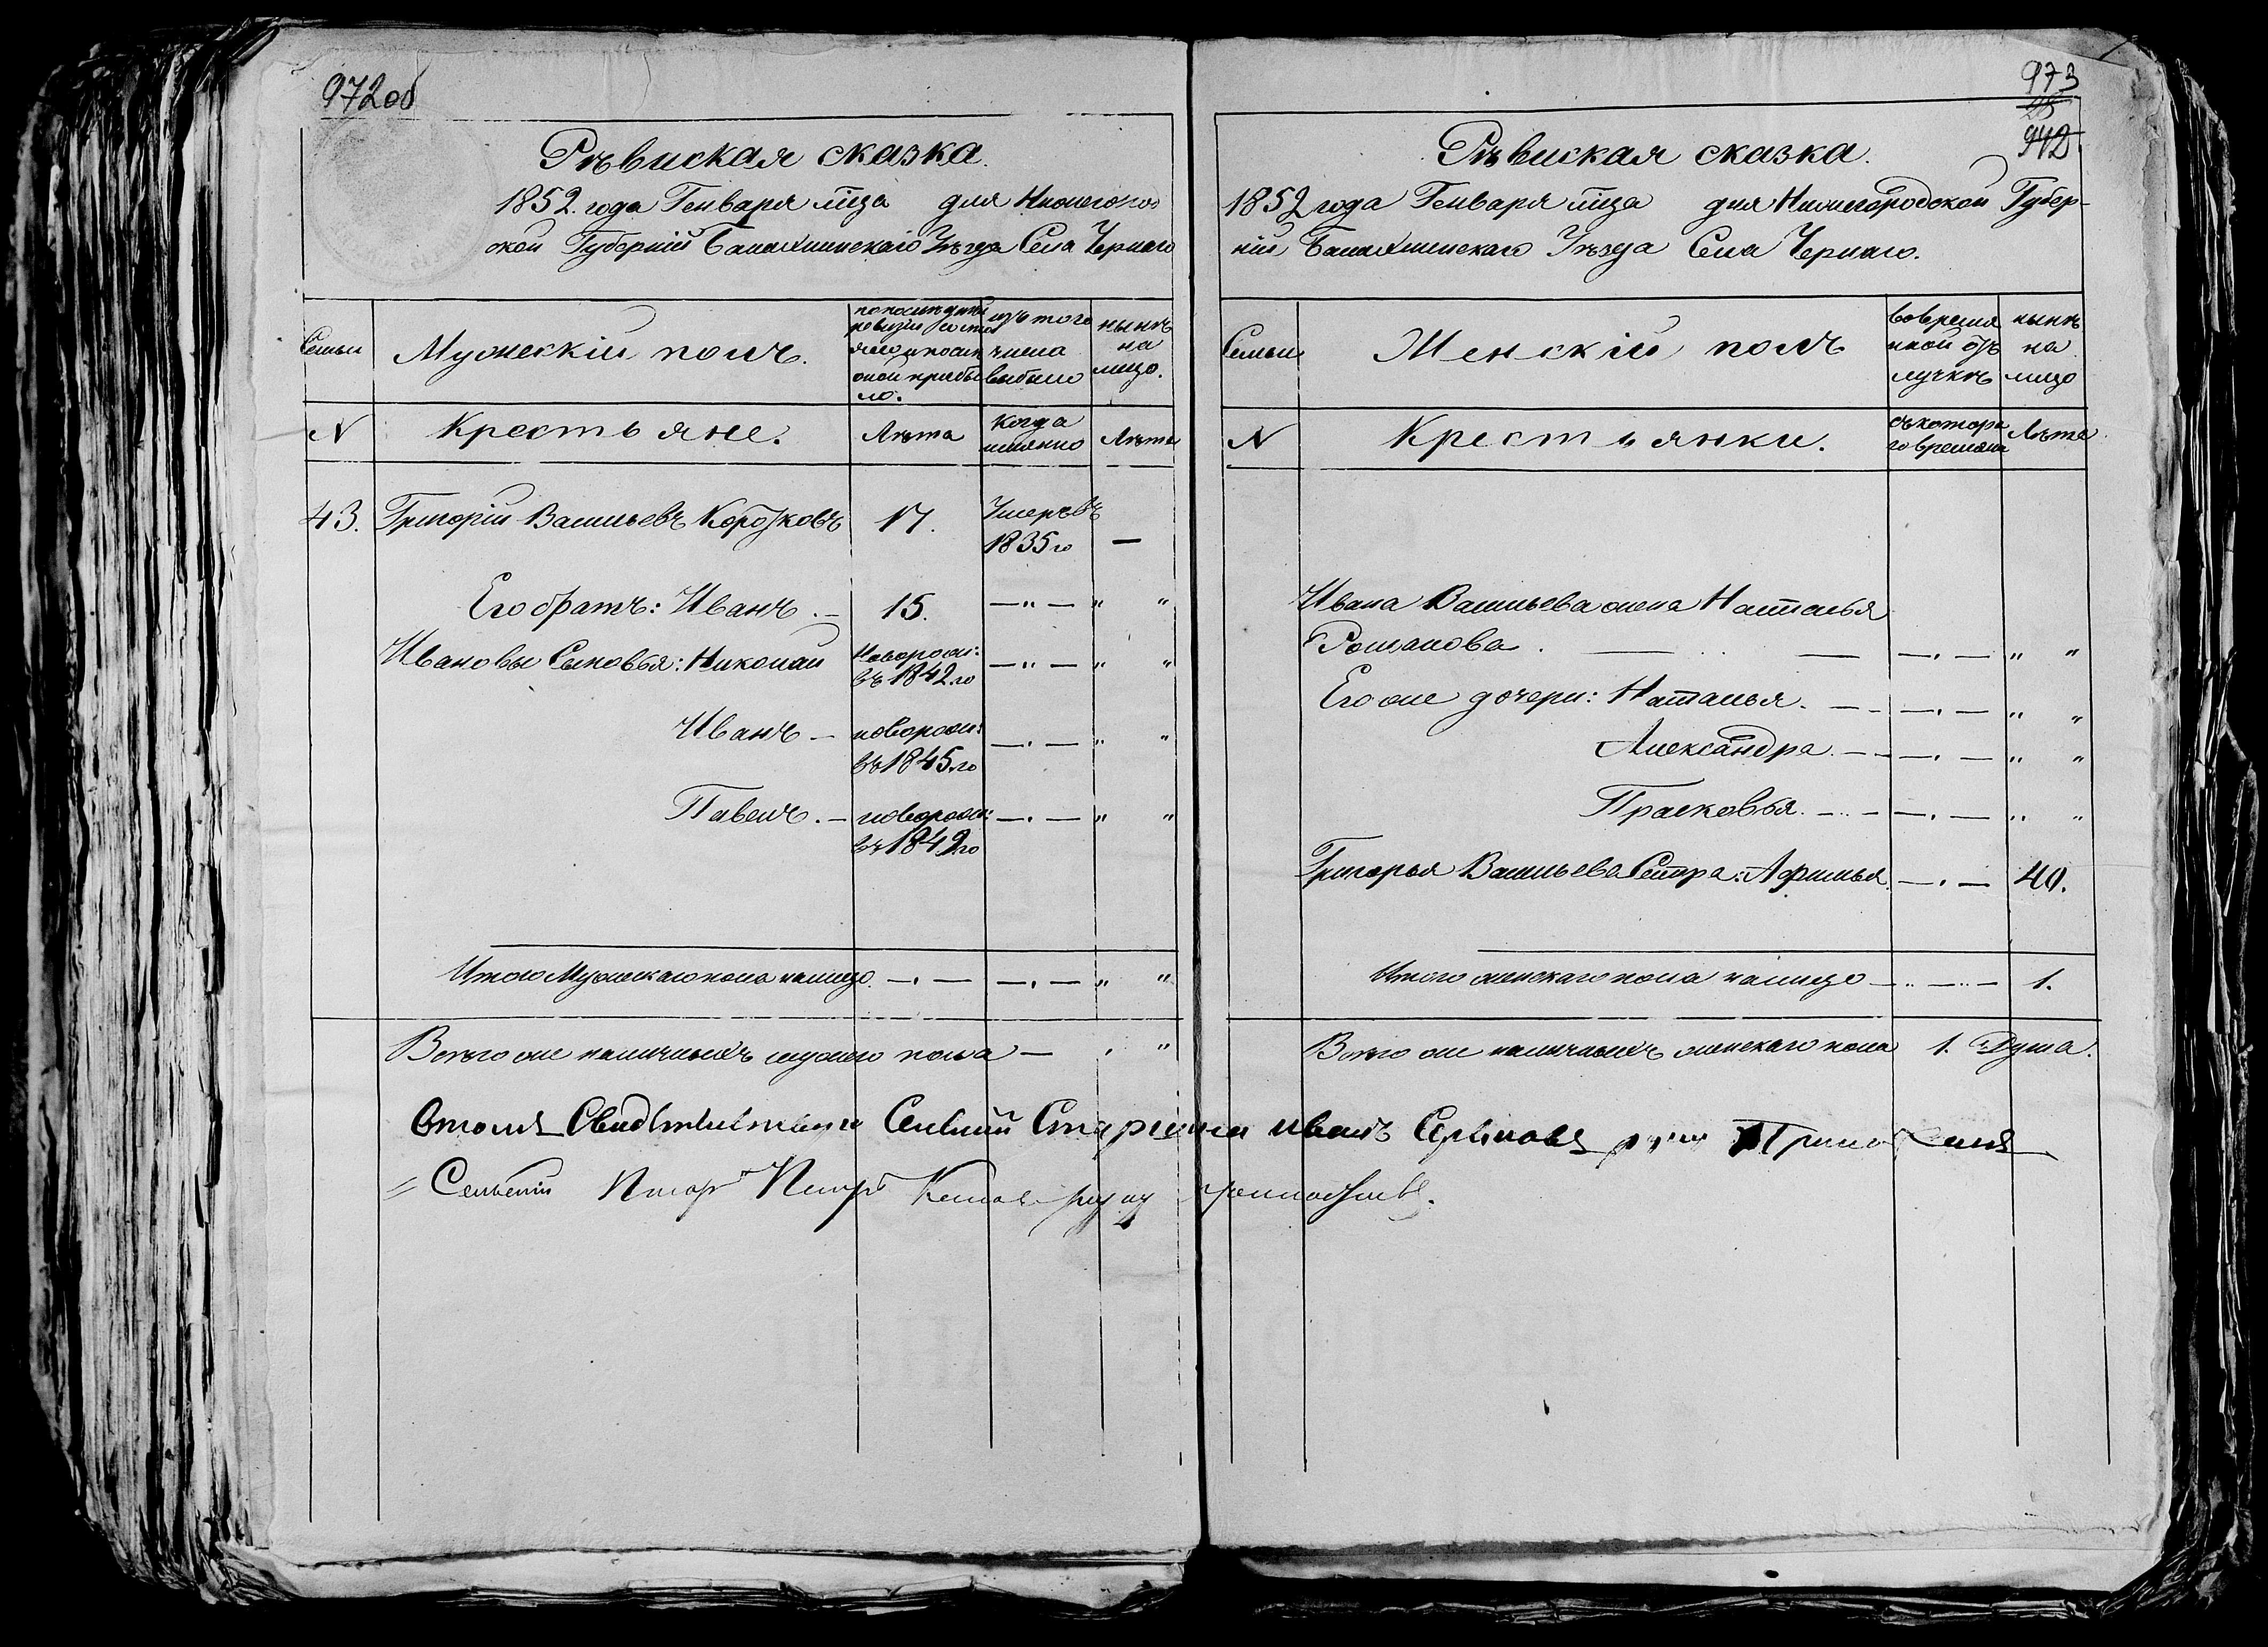 972об
Рѣвиская сказка.
1852. года Генваря мца дня Нижегород
ской Губерніи Балахнинскаго Уѣзда Села Чернаго
Семьи
Мужескій полъ.
по последней
ревизіи состо
яло и после
оной прибы
ло.
изъ того
числа
выбыло
нынѣ
на
лицо.
N
Крестьяне.
Лѣта
когда
имянно
Лѣта
43. Григорій Васильевъ Коротковъ 17. Умеръ въ
1835го —
Его братъ: Иванъ. — 15. —"— " "
Ивановы Сыновья: Николай новорож:
въ 1842.го —"— " "
Иванъ — новорож:
въ 1845.го —"— " "
Павелъ. — новорож:
въ 1849.го —"— " "
Итого Мужескаго пола налицо. —"— —"— " "
Всего же наличныхъ мужеско пола — " "
973
942
Рѣвиская сказка.
1852 года Генваря мца дня Нижегородской Губер-
ніи Балахнинскаго Уѣзда Села Чернаго.
Семьи
Женскій полъ
во времян
ной от
лучкѣ
нынѣ
на
лицо
N
Крестьянки.
съ котора
го времяни
Лѣта
Ивана Васильева жена Наталья
Романова. — — —"— " "
Его же дочери: Наталья. — —"— " "
Александра. — —"— " "
Прасковья. — —"— " "
Григорья Васильева Сестра: Афимья —"— 40.
Итого женскаго пола налицо —"—"— 1.
Всего же наличныхъ женскаго пола 1. Душа.
втомъ Сельский Старшина иванъ
Сельский Петръ руку приложилъ.